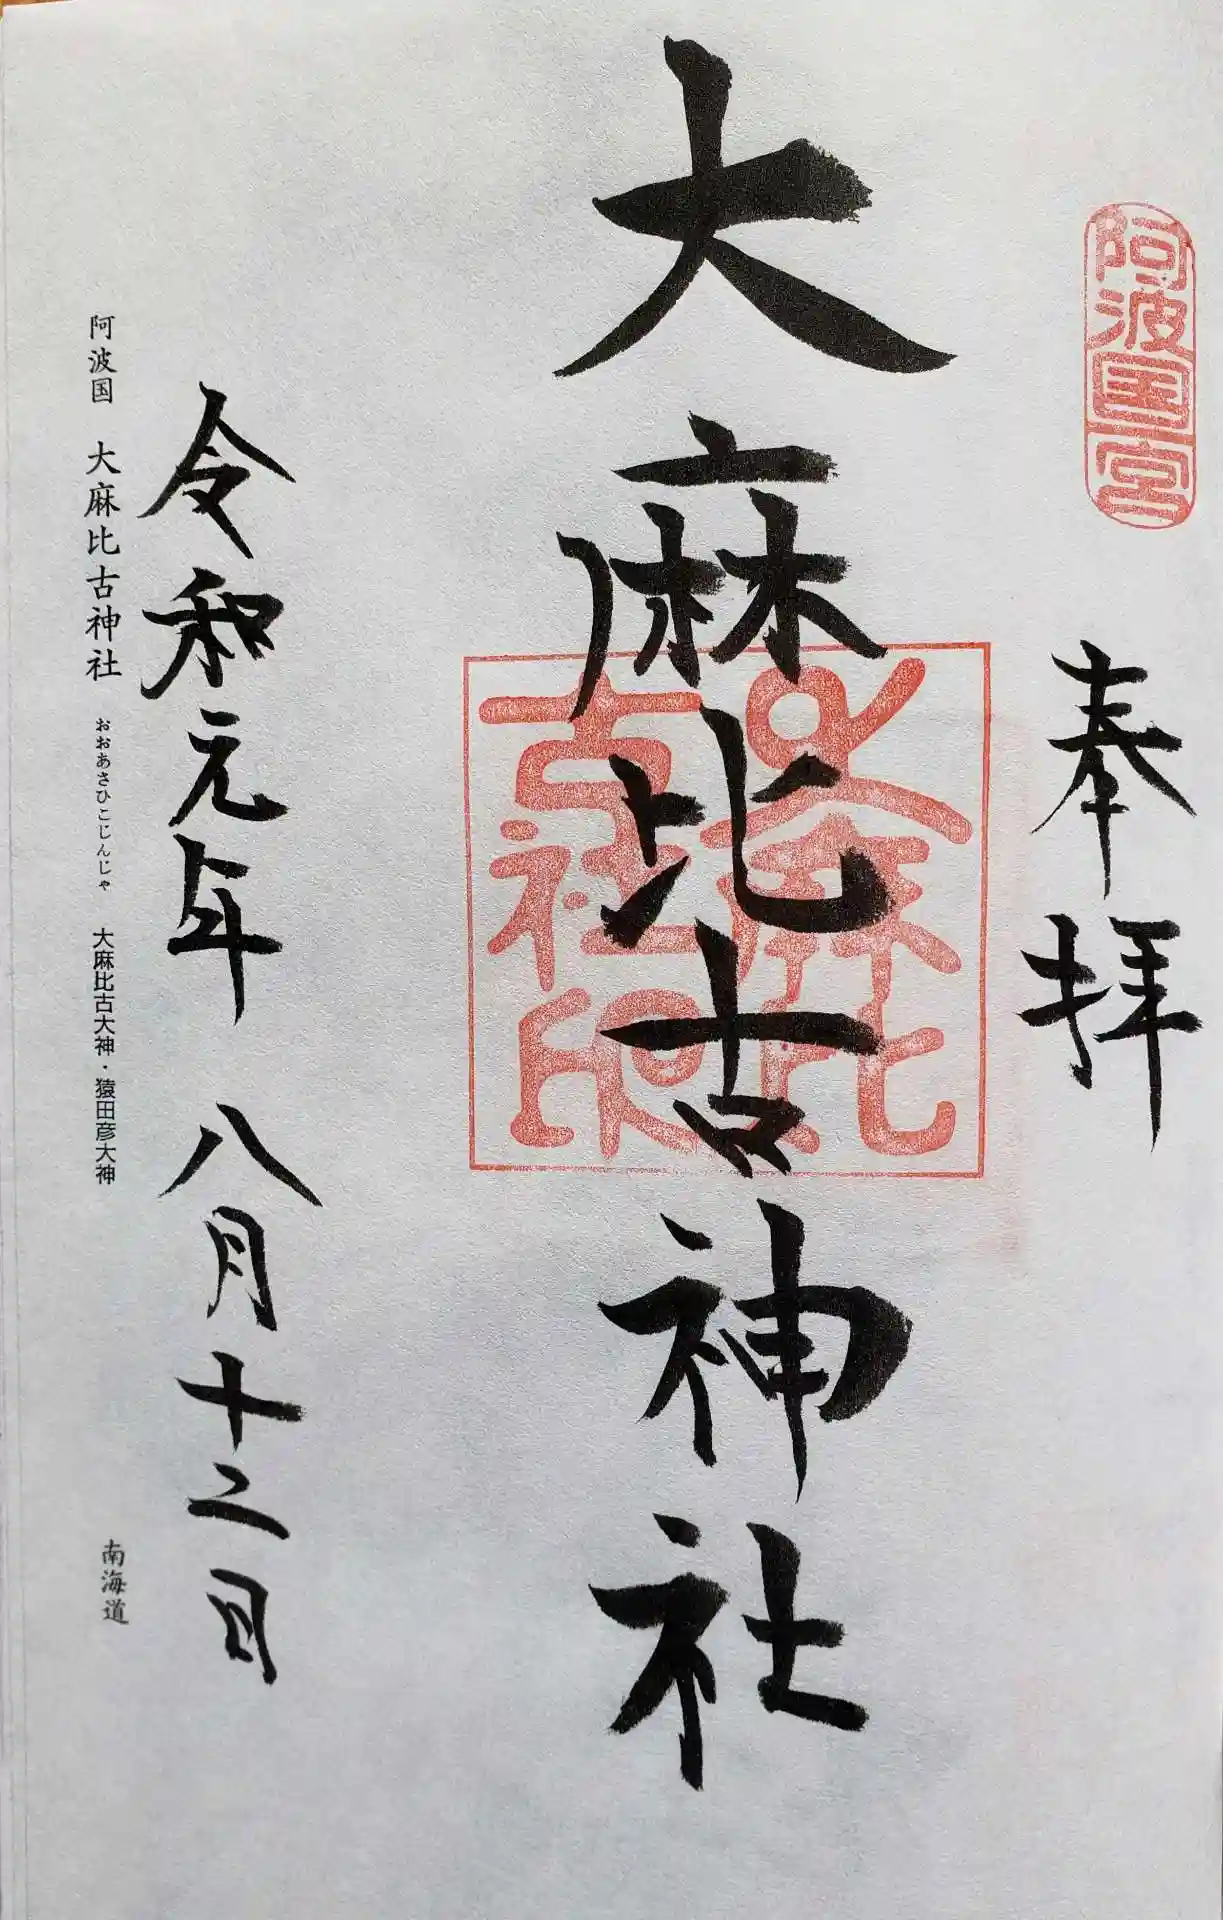 阿波国一宮
奉拝
大麻比古神社
大麻比古社印
令和元年 八月十二日
阿波国 大麻比古神社 おおあさひこじんじゃ 大麻比古大神・猿田彦大神
南海道